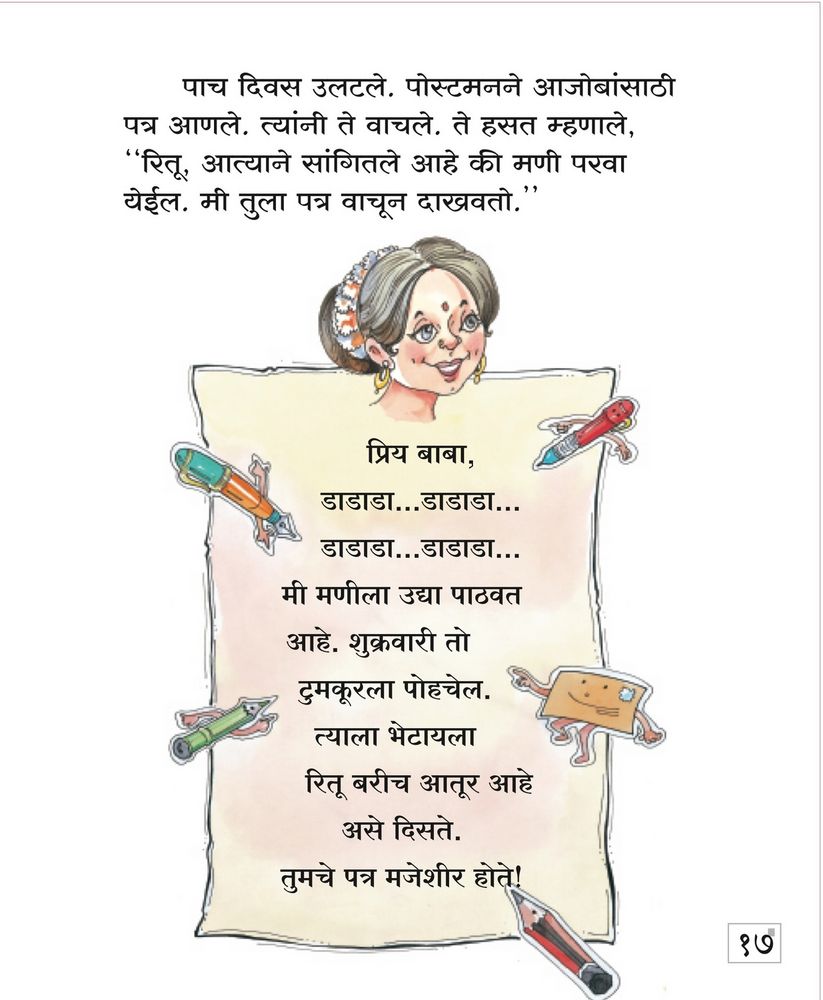 पाच दिवस उलटले. पोस्टमनने आजोबांसाठी
पत्र आणले. त्यांनी ते वाचले. ते हसत म्हणाले,
‘‘रितू, आत्याने सांगितले आहे की मणी परवा
येईल. मी तुला पत्र वाचून दाखवतो.’’
प्रिय बाबा,
डाडाडा...डाडाडा...
डाडाडा...डाडाडा...
मी मणीला उद्या पाठवत
आहे. शुक्रवारी तो
टुमकूरला पोहचेल.
त्याला भेटायला
रितू बरीच आतूर आहे
असे दिसते.
तुमचे पत्र मजेशीर होते!
१७